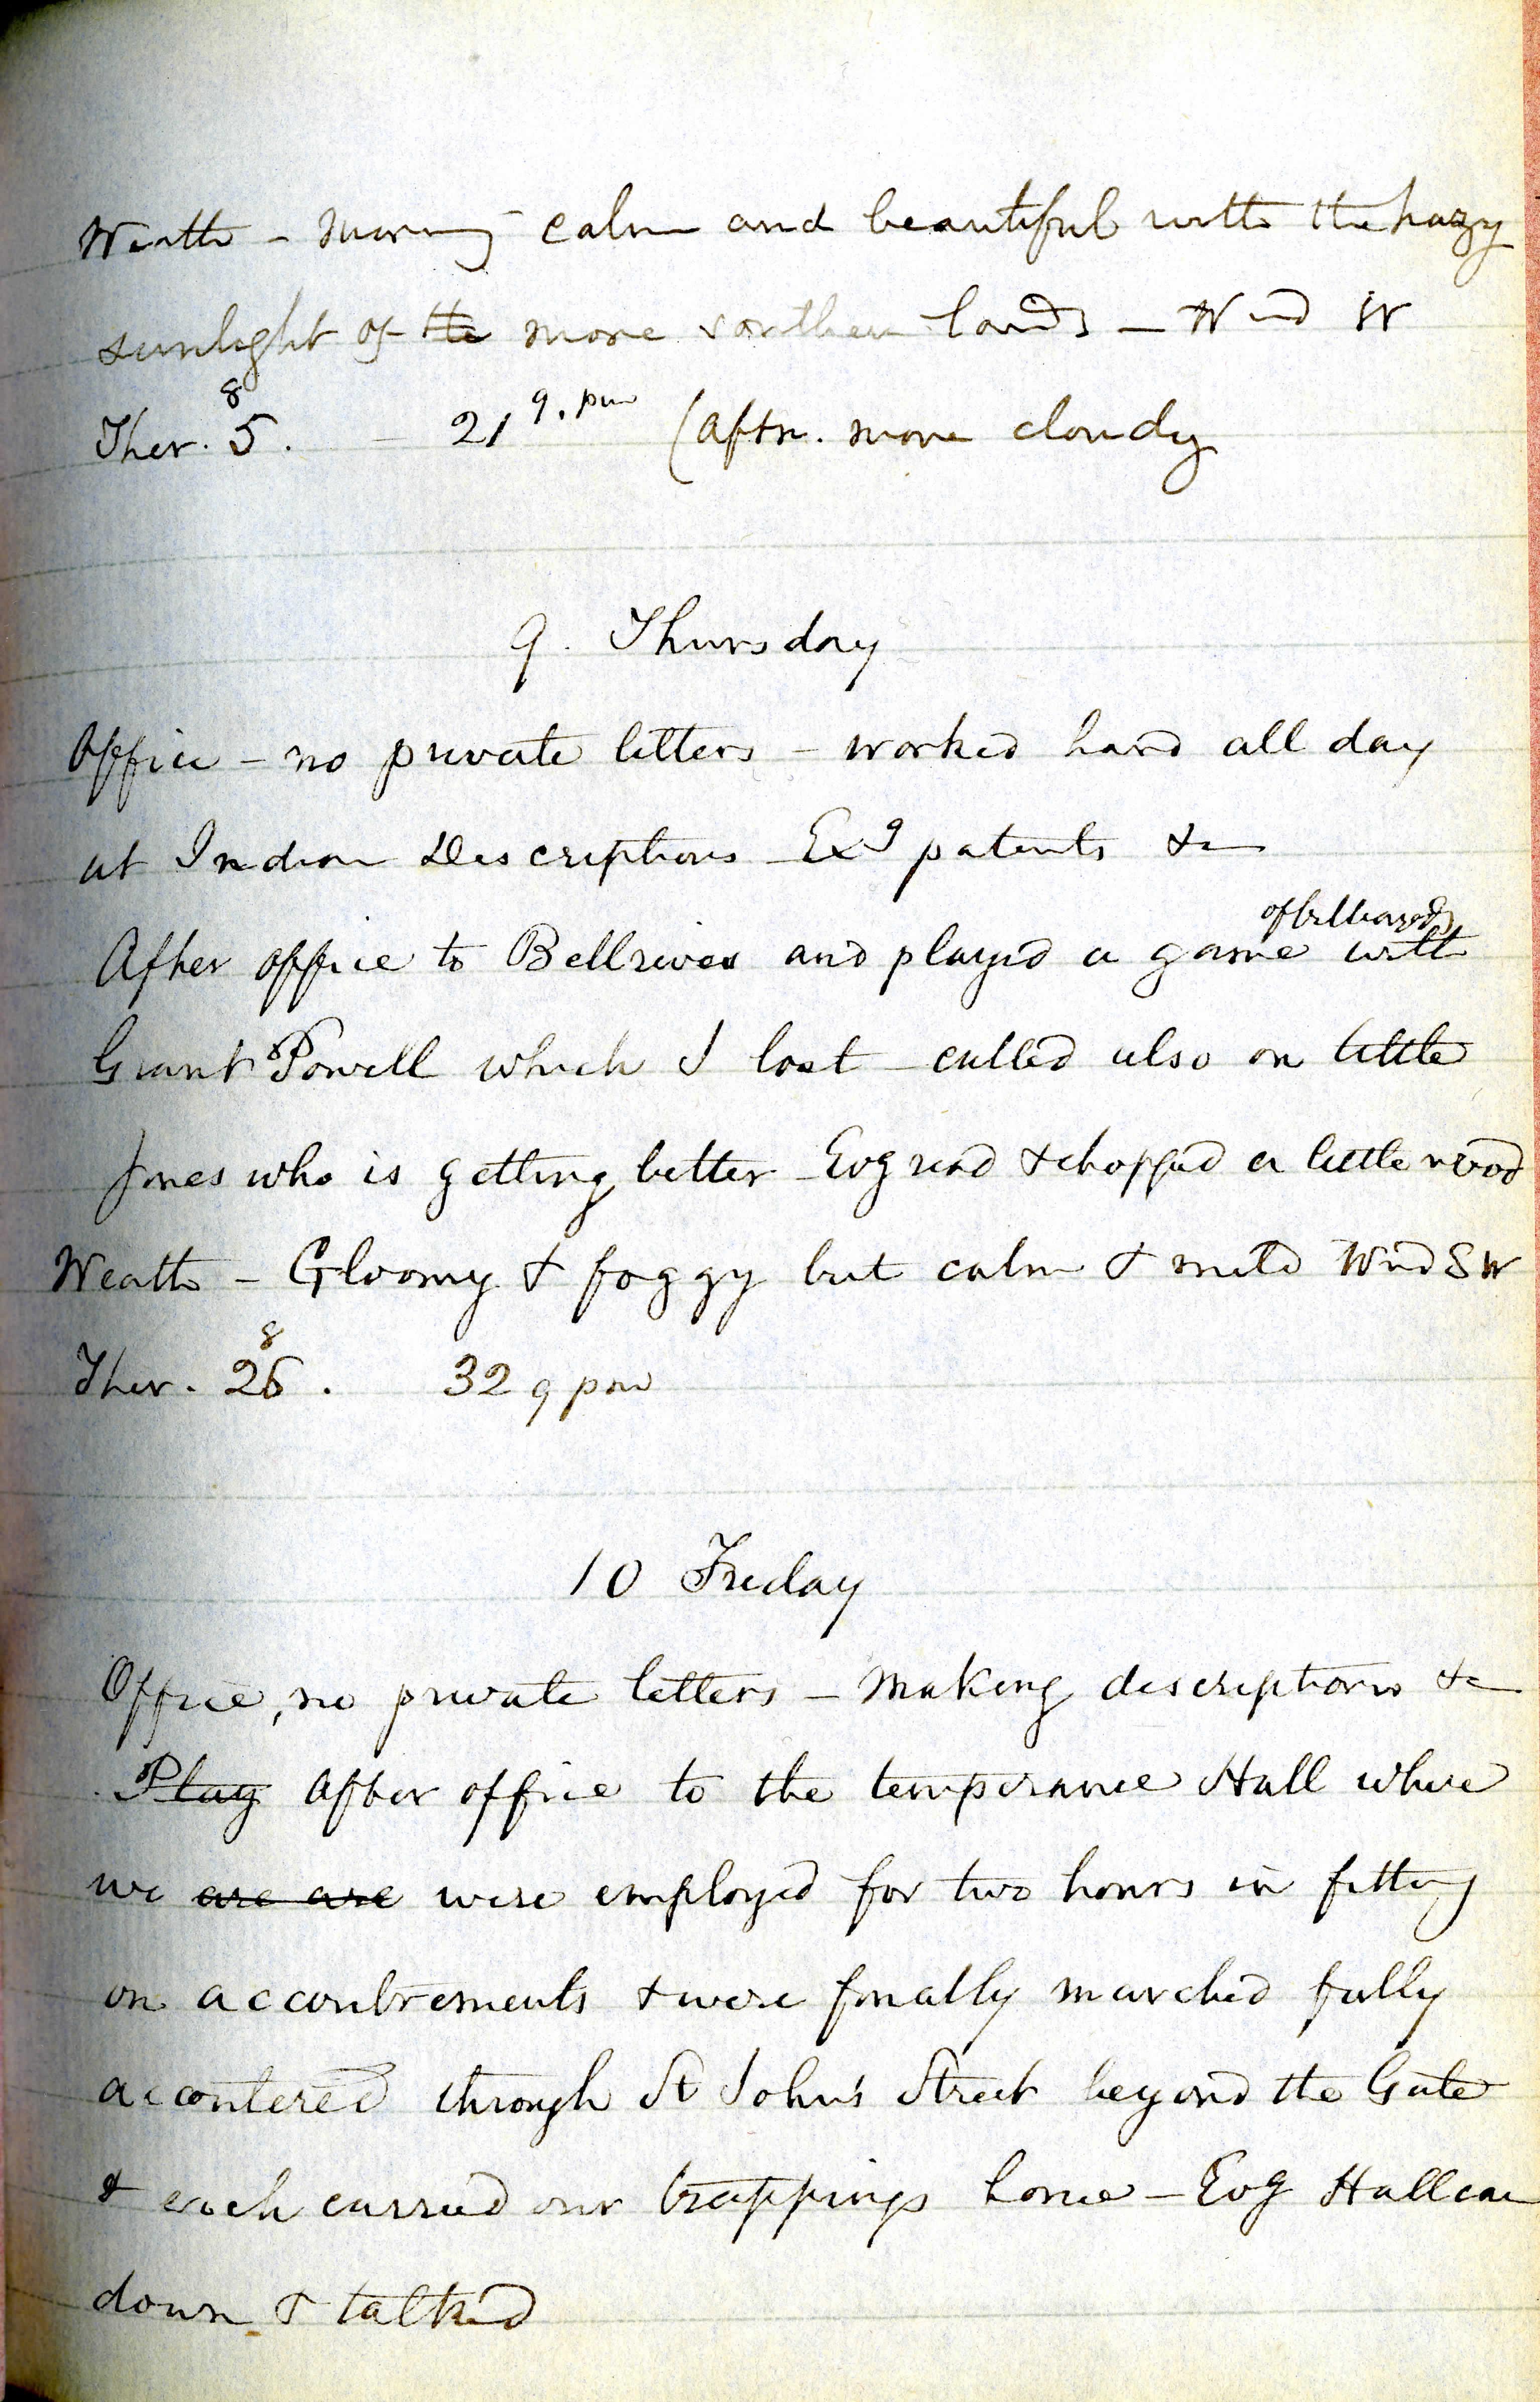 Weathr - Morning calm and beautiful with the hazy
sunlight of the more southern lands - Wind W
Ther. 5. 8 - 21 9. pm (aftn. more cloudy
9. Thursday
Office - no private letters - worked hard all day
at Indian Descriptions - Exg patents &c
of billiards
After office to Bellrives and played a game with
Grant Powell which I lost - called also on little
Jones who is getting better - Evg read & chopped a little wood
Weathr - Gloomy & foggy but calm & mild Wind SW
8
Ther. 26. 32 9 pm
10 Friday
Office, no private letters - Making descriptions &c
Play After office to the temperance Hall where
we are are were employed for two hours in fitting
on accoutrements & were finally marched fully
accoutered through St John's Street beyond the Gate
& each carried our trappings home - Evg Hall cam
down & talked